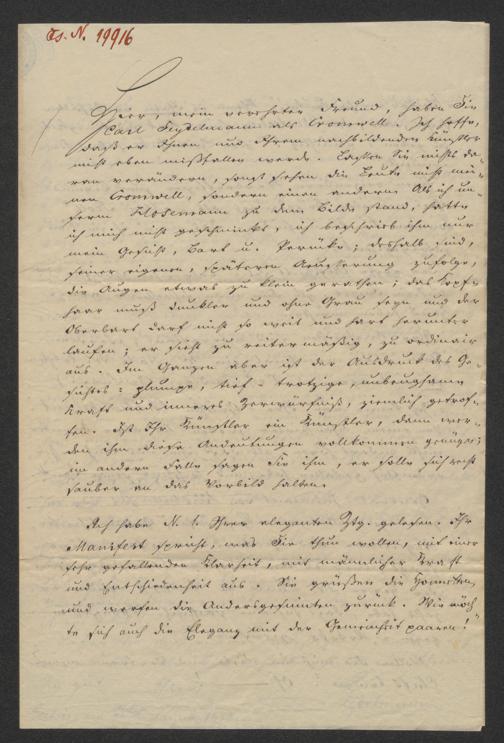 Ts. N. 19916
Hier, mein verehrter Freund, haben Sie
Carl Seydelmann als Cromwell. Ich hoffe,
daß er Ihnen und Ihrem nachbildenden Künstler
nicht eben mißfallen werde. Lassen Sie nichts da-
ran verändern, sonst sehen die Leute nicht mei-
nen Cromwell, sondern einen anderen. Als ich un-
serm Hosemann zu dem Bilde stand, hatte
ich mich nicht geschminkt, ich beschrieb ihm nur
mein Gesicht, Bart u. Perücke; deshalb sind,
seiner eigenen, späteren Aeusserung zufolge,
die Augen etwas zu klein gerathen; das Kopf-
haar muß dunkler und ohne Grau seyn und der
Oberbart darf nicht so weit und hart herunter
laufen; er sieht zu reitermäßig, zu ordinair
aus. Im Ganzen aber ist der Ausdruck des Ge-
sichtes: plumpe, tief-trotzige, unbeugsame
Kraft und inneres Zerwürfniß, ziemlich getrof-
fen. Ist Ihr Künstler ein Künstler, dann wer-
den ihm diese Andeutungen vollkommen genügen;
im andern Falle sagen Sie ihm, er solle sich recht
sauber an das Vorbild halten.
Ich habe N. 1. Ihrer eleganten Ztg. gelesen. Ihr
Manifest spricht, was Sie thun wollen, mit einer
sehr gefallenden Klarheit, mit männlicher Kraft
und Entschiedenheit aus. Sie grüßen die Honnetten,
und werfen die Andersgesinnten zurück. Wie möch-
te sich auch die Eleganz mit der Gemeinheit paaren!